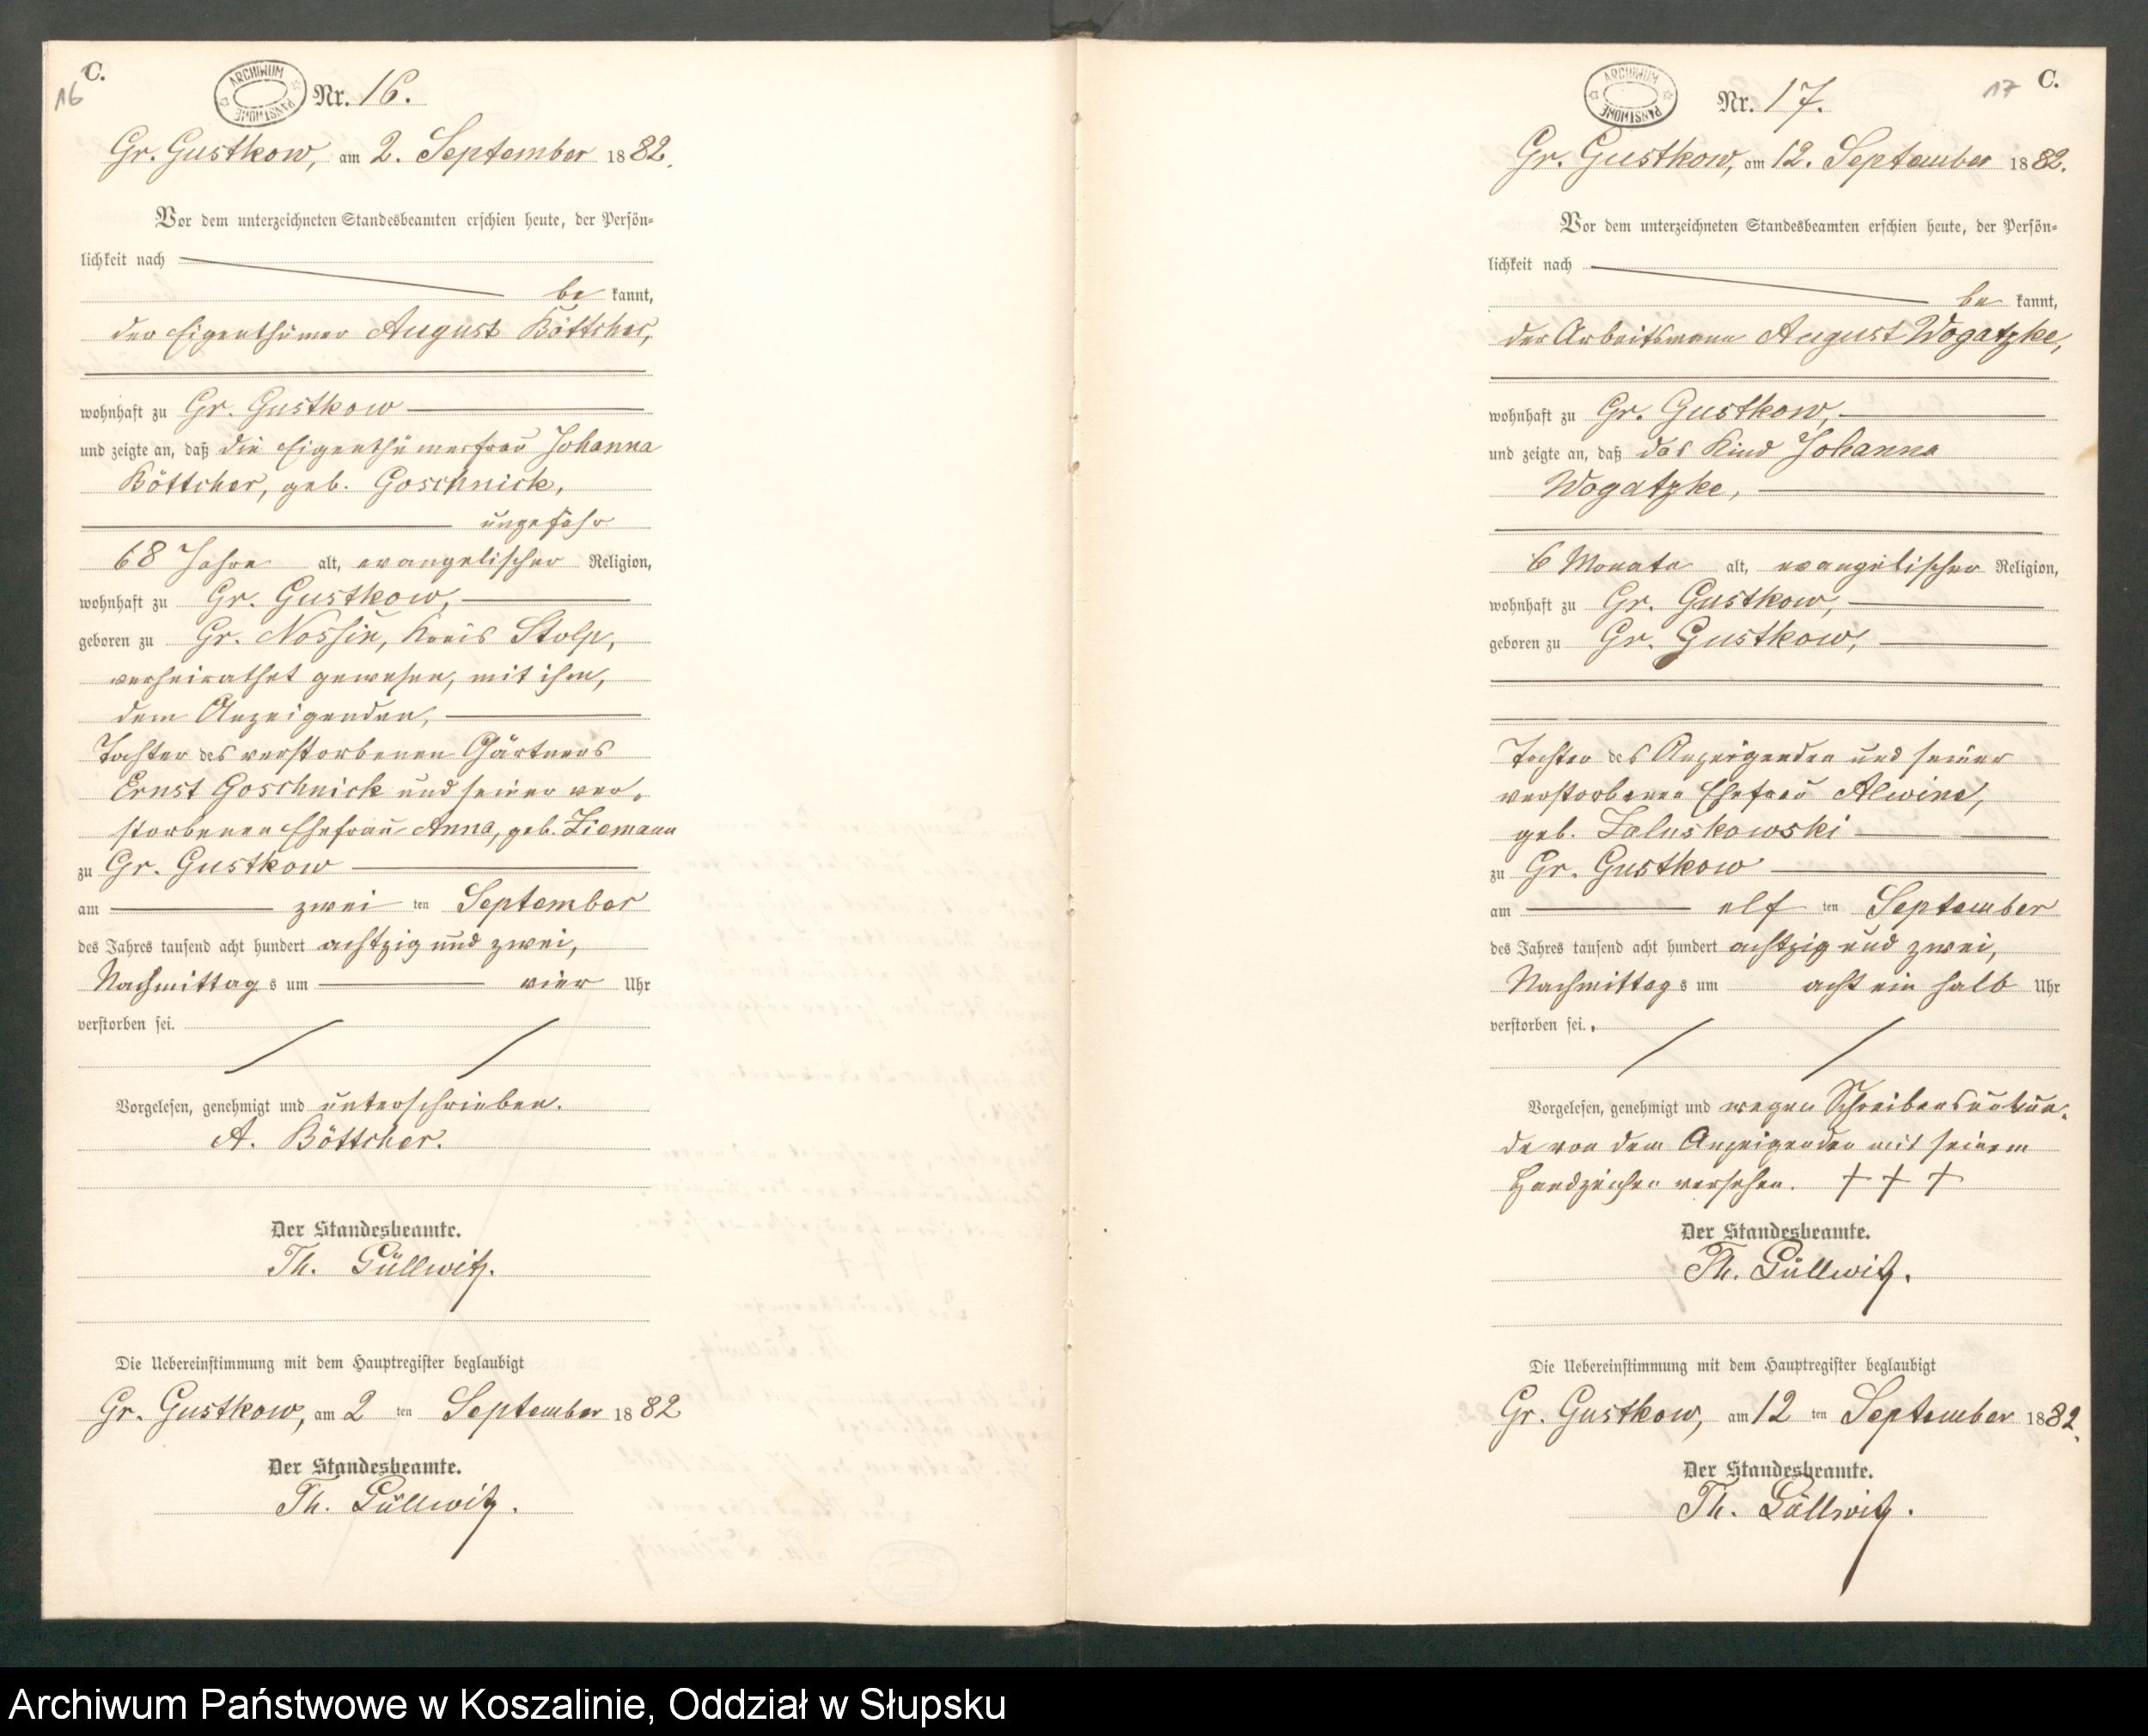 C.
16
ARCHIWUM PAŃSTWOWE
Nr. 16.
Gr. Gustkow, am 2. September 1882.
Vor dem unterzeichneten Standesbeamten erschien heute, der Persön-
lichkeit nach
be kannt,
der Eigenthümer August Böttcher,
wohnhaft zu Gr. Gustkow
und zeigte an, daß die Eigenthümerfrau Johanna
Böttcher, geb. Goschnick,
ungefähr
68 Jahre alt, evangelischer Religion,
wohnhaft zu Gr. Gustkow,
geboren zu Gr. Nossin, Kreis Stolp,
verheirathet gewesen, mit ihm,
dem Anzeigenden,
Tochter des verstorbenen Gärtners
Ernst Goschnick und seiner ver-
storbenen Ehefrau Anna, geb. Ziemann
zu Gr. Gustkow
am zwei ten September
des Jahres tausend acht hundert achtzig und zwei,
Nachmittag s um vier Uhr
verstorben sei.
Vorgelesen, genehmigt und unterschrieben.
A. Böttcher.
Der Standesbeamte.
Th. Güllwitz.
Die Uebereinstimmung mit dem Hauptregister beglaubigt
Gr. Gustkow, am 2 ten September 1882
Der Standesbeamte.
Th. Güllwitz.
17 C.
ARCHIWUM PAŃSTWOWE
Nr. 17.
Gr. Gustkow, am 12. September 1882.
Vor dem unterzeichneten Standesbeamten erschien heute, der Persön-
lichkeit nach
be kannt,
der Arbeitsmann August Wogatzke,
wohnhaft zu Gr. Gustkow,
und zeigte an, daß das Kind Johanna
Wogatzke,
6 Monate alt, evangelischer Religion,
wohnhaft zu Gr. Gustkow,
geboren zu Gr. Gustkow,
Tochter des Anzeigenden und seiner
verstorbenen Ehefrau Alwine,
geb. Zaluskowski
zu Gr. Gustkow
am elf ten September
des Jahres tausend acht hundert achtzig und zwei,
Nachmittag s um acht ein halb Uhr
verstorben sei.
Vorgelesen, genehmigt und wegen Schreibensunkun-
de von dem Anzeigenden mit seinem
Handzeichen versehen. + + +
Der Standesbeamte.
Th. Güllwitz.
Die Uebereinstimmung mit dem Hauptregister beglaubigt
Gr. Gustkow, am 12 ten September 1882.
Der Standesbeamte.
Th. Güllwitz.
Archiwum Państwowe w Koszalinie, Oddział w Słupsku